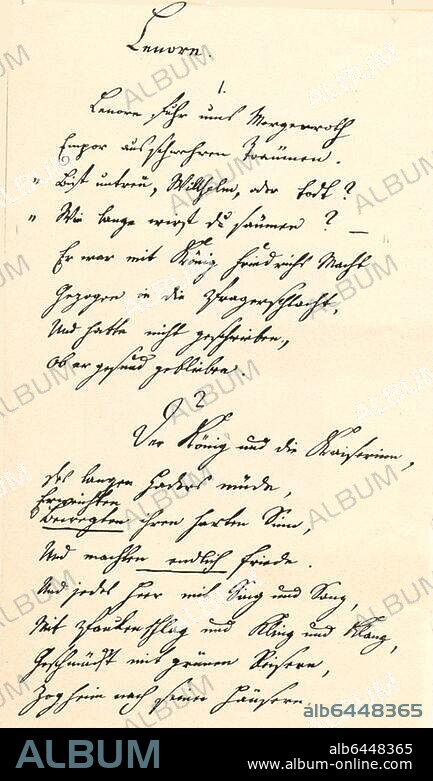 Lenore.
1.
Lenore fuhr ums Morgenroth
Empor aus schweren Träumen.
" Bist untreu, Wilhelm, oder todt?
" Wie lange wirst du säumen? —
Er war mit König Friedrichs Macht
Gezogen in die Pragerschlacht,
Und hatte nicht geschrieben,
Ob er gesund geblieben.
2
Der König und die Kaiserinn,
Des langen Haders müde,
Erweichten
Bewegten ihren harten Sinn,
Und machten endlich Friede.
Und jedes Heer mit Sing und Sang,
Mit Paukenschlag und Kling und Klang,
Geschmückt mit grünen Reisern,
Zog heim nach seinen Häusern.
alb6448365
ALBUM
alb6448365
www.album-online.com